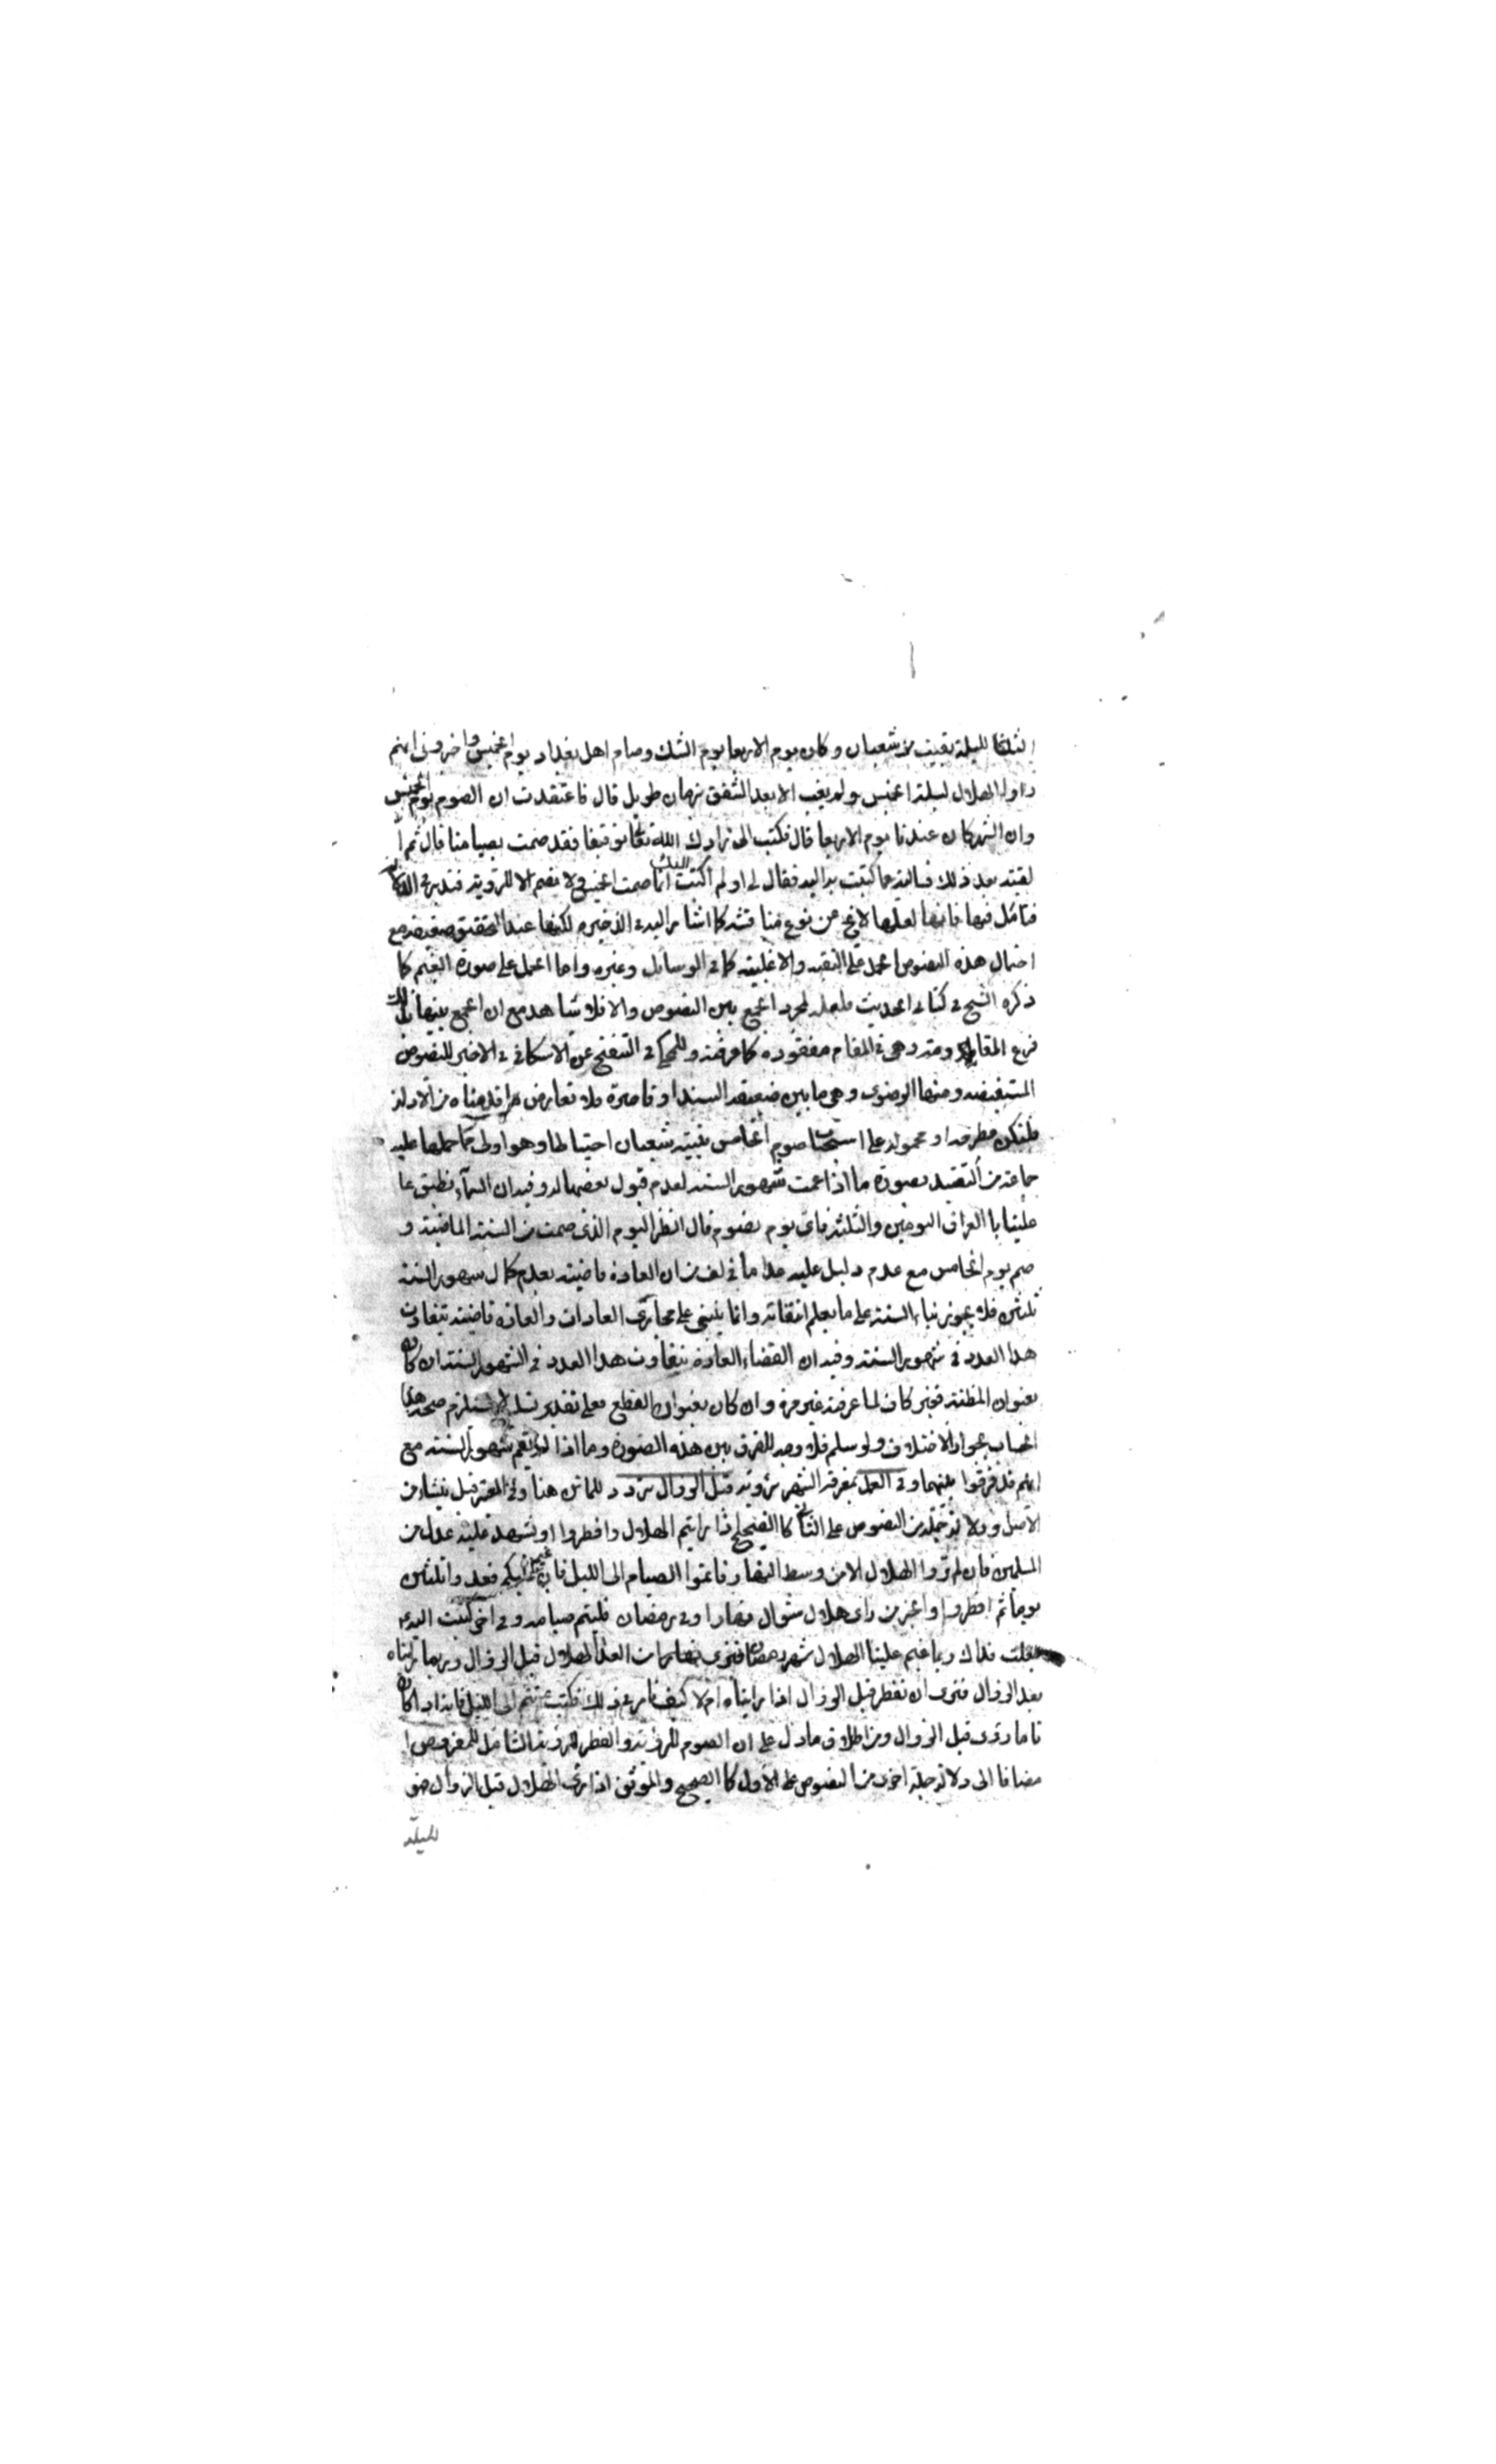 الثلثا لليلة بقيت من شعبان وكان يوم الاربعا يوم الشك وصام اهل بغداد يوم الخميس واخبرونى انهم
راوا الهلال ليلة الخميس ولم يغب الا بعد الشفق بزمان طويل قال فاعتقدت ان الصوم يوم الخميس
وان الشهر كان عندنا يوم الاربعا قال فكتب الى زادك الله تعالى توفيقا فقد صمت بصيامنا قال ثم
لقيته بعد ذلك فسالته عما كتبت به اليه فقال لى او لم اكتب اليك انما صمت الخميس ولا تصم الا للرؤية فتدبر
فتامل فيها فانها لعلها لا تخ عن نوع مناقشة كما اشار اليه فى الذخيره لكنها عند التحقيق ضعيفة مع
احتمال هذه النصوص الحمل على التقيه والاغلبية كما فى الوسائل وغيره واما الحمل على صورة الغيم كما
ذكره الشيخ فى كتابى الحديث فلعله لمجرد الجمع بين النصوص والا فلا شاهد مع ان الجمع بينها بذلك
فرع المقاومة وهى فى المقام مفقوده كما عرفته وللمحكى فى التنقيح عن الاسكافى فى الاخير للنصوص
المستفيضه ومنها الرضوى وهى ما بين ضعيفة السند او قاصرة فلا تعارض ما قدمناه من الادلة
فلتكن مطرحة او محمولة على استحباب صوم الخامس بنية شعبان احتياطا وهو اولى مما حملها عليه
جماعة من التقييد بصورة ما اذا غمت شهور السنة لعدم قبول بعضها له وفيه ان السماء تطبق علينا
علينا بالعراق اليومين والثلثة فاى يوم نصوم قال انظر اليوم الذى صمت من السنة الماضية و
صم يوم الخامس مع عدم دليل عليه عدا ما فى لف من ان العادة قاضية بعدم كمال شهور السنة
ثلثين فلا يجوز بناء السنة على ما يعلم انتفائه وانما يبنى على مجارى العادات والعادة قاضية بتفاوت
هذا العدد فى شهور السنة وفيه ان اقتضاء العادة بتفاوت هذا العدد فى الشهور السنة ان كان
بعنوان المظنة فغير كاف لما عرفته غير مرة وان كان بعنوان القطع فعلى تقدير تسليمه لا يستلزم صحة هذا
الحساب بجواز الاختلاف ولو سلم فلا وجه للفرق بين هذه الصورة وما اذا لم تغم شهور السنة مع
انهم قد فرقوا بينهما وفى العمل بمعرفة الشهر برؤيته قبل الزوال تردد للماتن هنا وفى المعتبر قيل ينشاء من
الاصل ودلالة جملة من النصوص على الثانى كالصحيح اذا رايتم الهلال فافطروا او تشهد عليه عدل من
المسلمين فان لم تروا الهلال الا من وسط النهار فاتموا الصيام الى الليل فان غم عليكم فعدوا ثلثين
يوما ثم افطروا والخبر من راى هلال شوال نهارا وفى رمضان فليتم صيامه وفى اخر كتبت اليه
جعلت فداك ربما غم علينا الهلال شهر رمضان فنرى من الغد الهلال قبل الزوال وربما رايناه
بعد الزوال فنرى ان نفطر قبل الزوال اذا رايناه ام لا كيف تامر فى ذلك فكتب تتم الى الليل فانه ان كان
تاما رؤى قبل الزوال ومن اطلاق ما دل على ان الصوم للرؤية والفطر للرؤية الشامل للمفروض
مضافا الى دلالة جملة اخرى من النصوص على الاول كالصحيح والموثق اذا رؤى الهلال قبل الزوال فهو
لليلة